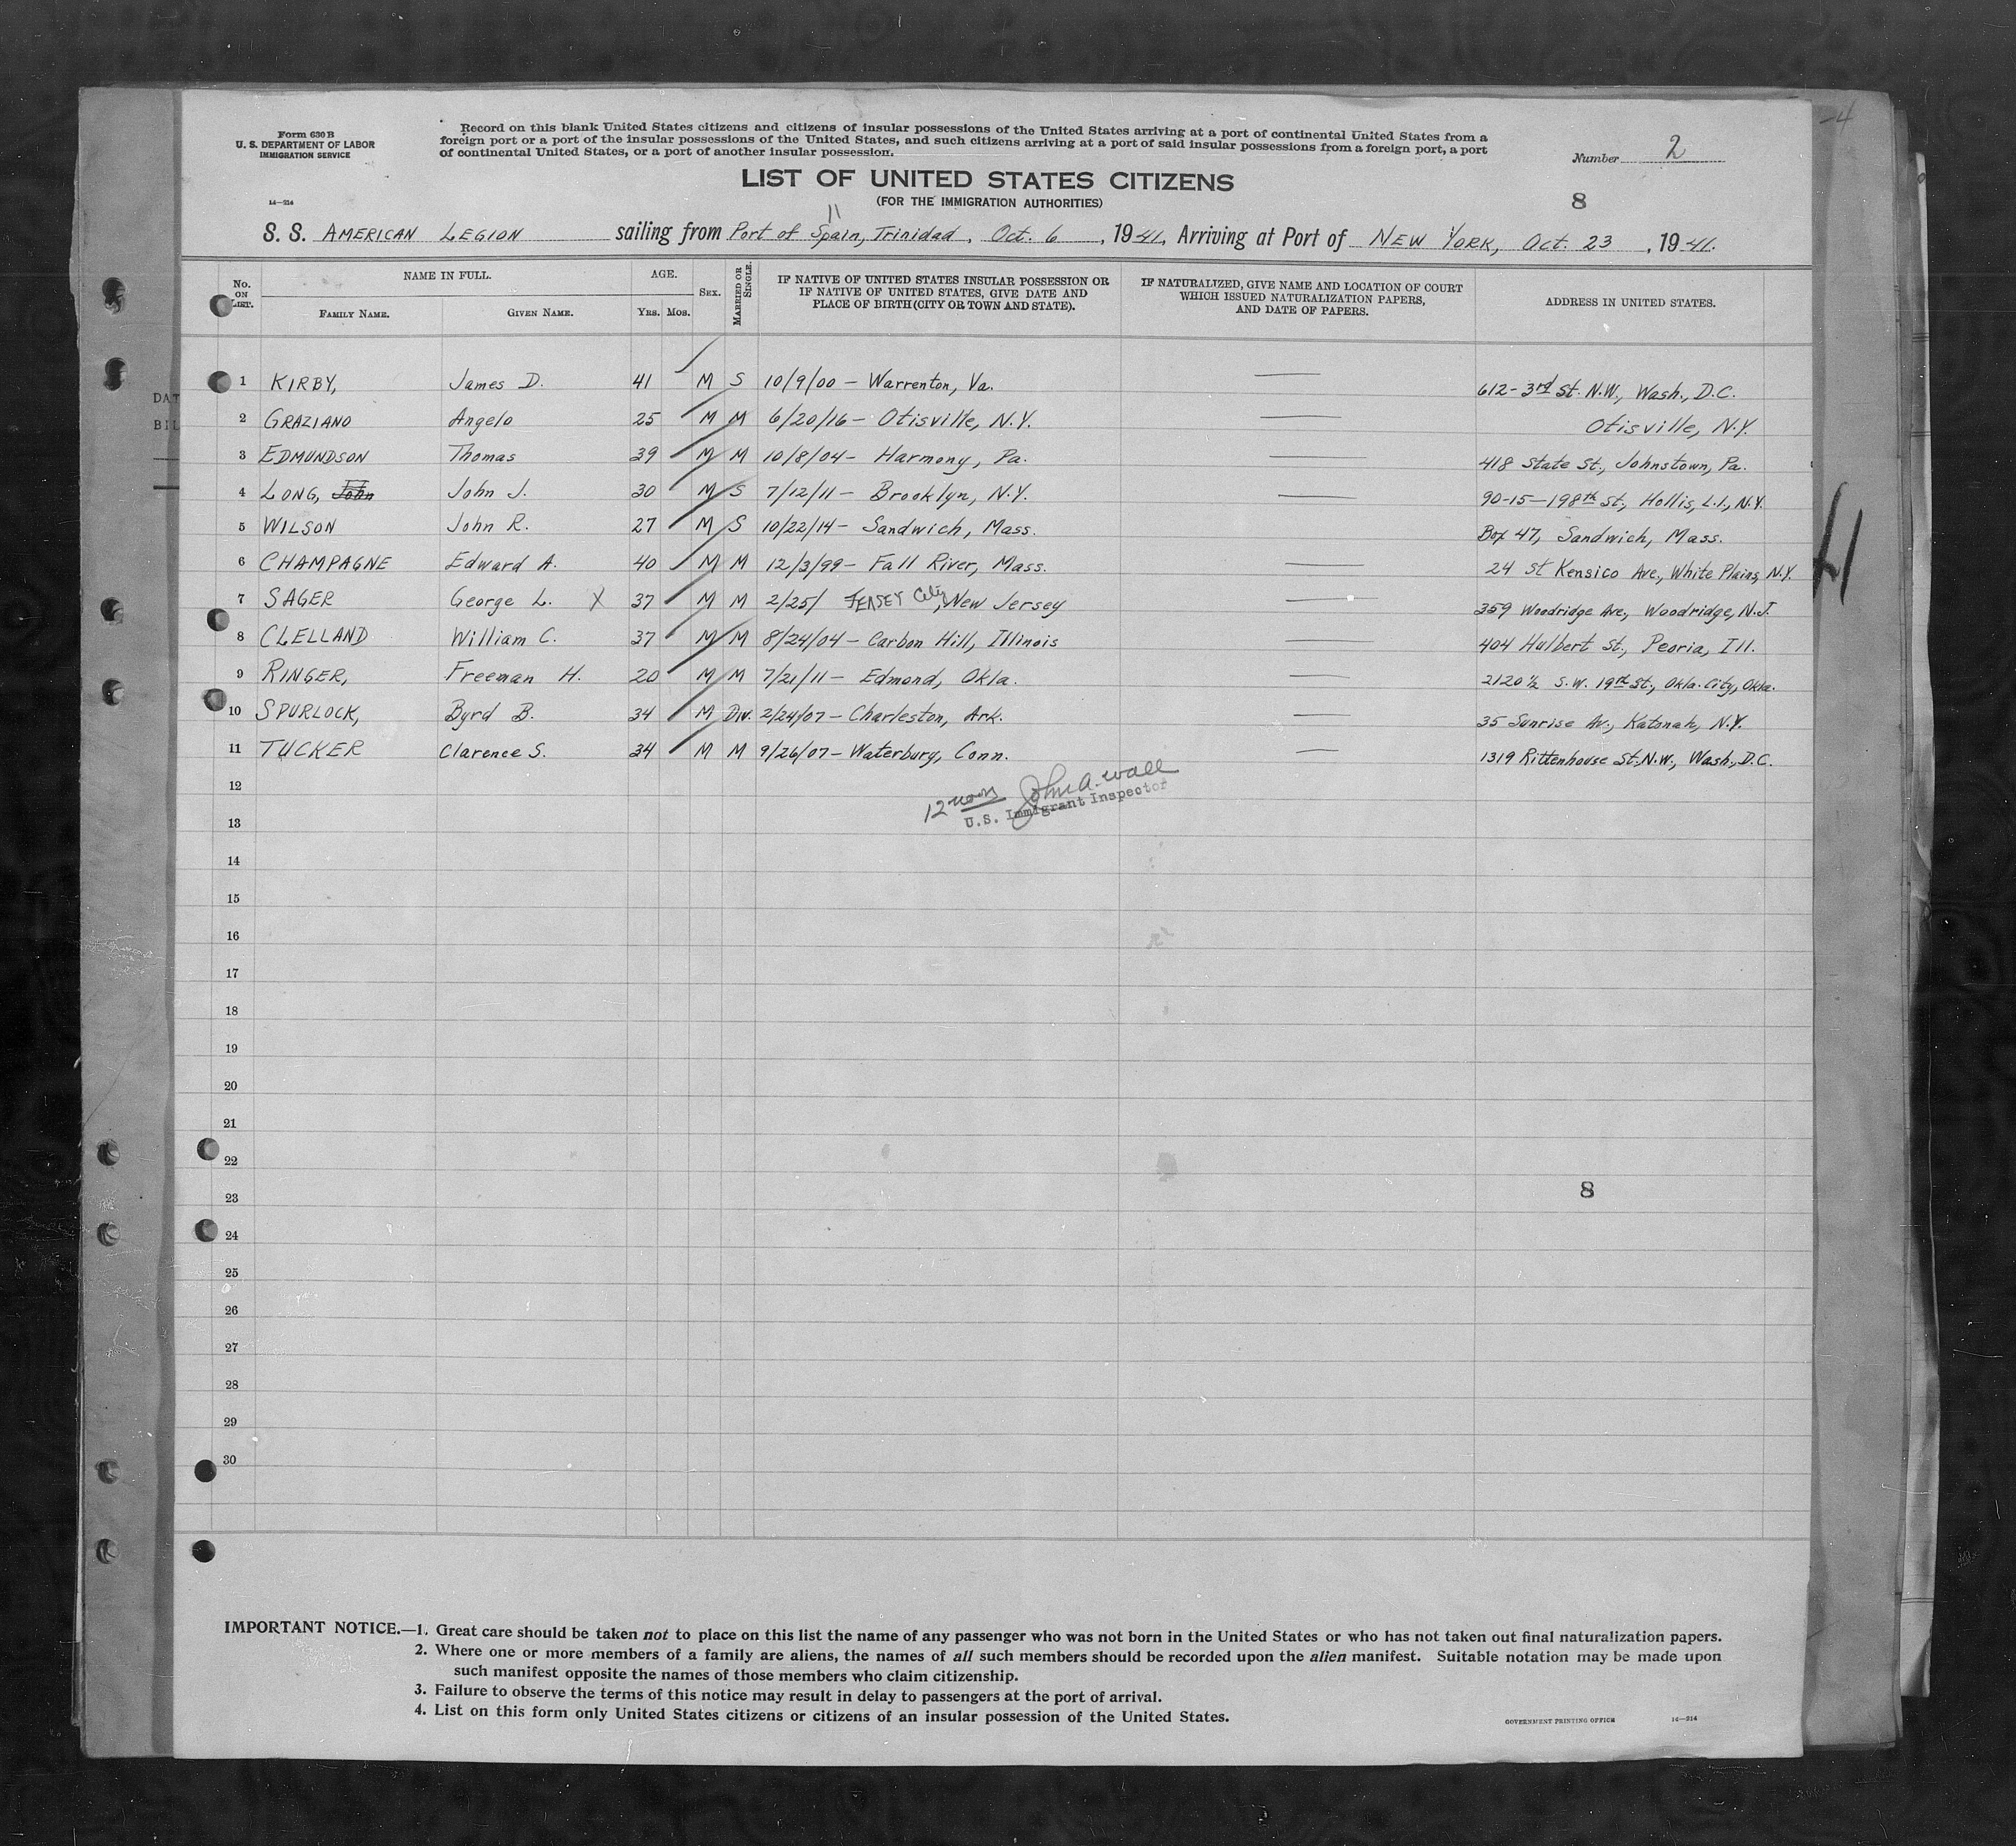 4
Form 630 B
U. S. DEPARTMENT OF LABOR
IMMIGRATION SERVICE
14—314
Record on this blank United States citizens and citizens of insular possessions of the United States arriving at a port of continental United States from a
foreign port or a port of the insular possessions of the United States, and such citizens arriving at a port of said insular possessions from a foreign port, a port
of continental United States, or a port of another insular possession.
Number 2
LIST OF UNITED STATES CITIZENS
(FOR THE IMMIGRATION AUTHORITIES)
8
11
S. S. AMERICAN LEGION sailing from Port of Spain, Trinidad, Oct. 6, 1941, Arriving at Port of NEW YORK, Oct. 23, 1941.
No. ON LIST. NAME IN FULL. FAMILY NAME. GIVEN NAME. AGE. YRS. MOS. SEX. MARRIED OR SINGLE. IF NATIVE OF UNITED STATES INSULAR POSSESSION OR IF NATIVE OF UNITED STATES, GIVE DATE AND PLACE OF BIRTH (CITY OR TOWN AND STATE). IF NATURALIZED, GIVE NAME AND LOCATION OF COURT WHICH ISSUED NATURALIZATION PAPERS, AND DATE OF PAPERS. ADDRESS IN UNITED STATES.
1 KIRBY, James D. 41 M S 10/9/00 – Warrenton, Va. — 612 - 3rd St. N.W., Wash., D.C.
2 GRAZIANO Angelo 25 M M 6/20/16 – Otisville, N.Y. — Otisville, N.Y.
3 EDMUNDSON Thomas 39 M M 10/8/04 – Harmony, Pa. — 418 State St., Johnstown, Pa.
4 LONG, John John J. 30 M S 7/12/11 – Brooklyn, N.Y. — 90-15-198th St., Hollis, L.I., N.Y.
5 WILSON John R. 27 M S 10/22/14 – Sandwich, Mass. Box 47, Sandwich, Mass.
6 CHAMPAGNE Edward A. 40 M M 12/3/99 – Fall River, Mass. — 24 St Kensico Ave., White Plains, N.Y.
7 SAGER George L. X 37 M M 2/25/ JERSEY City, New Jersey — 359 Woodridge Ave., Woodridge, N.J.
8 CLELLAND William C. 37 M M 8/24/04 – Carbon Hill, Illinois — 404 Hulbert St., Peoria, Ill.
9 RINGER, Freeman H. 20 M M 7/21/11 – Edmond, Okla. — 2120 ½ S.W. 19th St., Okla. City, Okla.
10 SPURLOCK, Byrd B. 34 M Div. 2/24/07 – Charleston, Ark. — 35 Sunrise Av., Katonah, N.Y.
11 TUCKER Clarence S. 34 M M 9/26/07 – Waterbury, Conn. — 1319 Rittenhouse St., N.W., Wash., D.C.
12
12 noon John A. Wall
U.S. Immigrant Inspector
13
14
15
16
17
18
19
20
21
22
23 8
24
25
26
27
28
29
30
IMPORTANT NOTICE.—1. Great care should be taken not to place on this list the name of any passenger who was not born in the United States or who has not taken out final naturalization papers.
2. Where one or more members of a family are aliens, the names of all such members should be recorded upon the alien manifest. Suitable notation may be made upon
such manifest opposite the names of those members who claim citizenship.
3. Failure to observe the terms of this notice may result in delay to passengers at the port of arrival.
4. List on this form only United States citizens or citizens of an insular possession of the United States.
GOVERNMENT PRINTING OFFICE 14—314